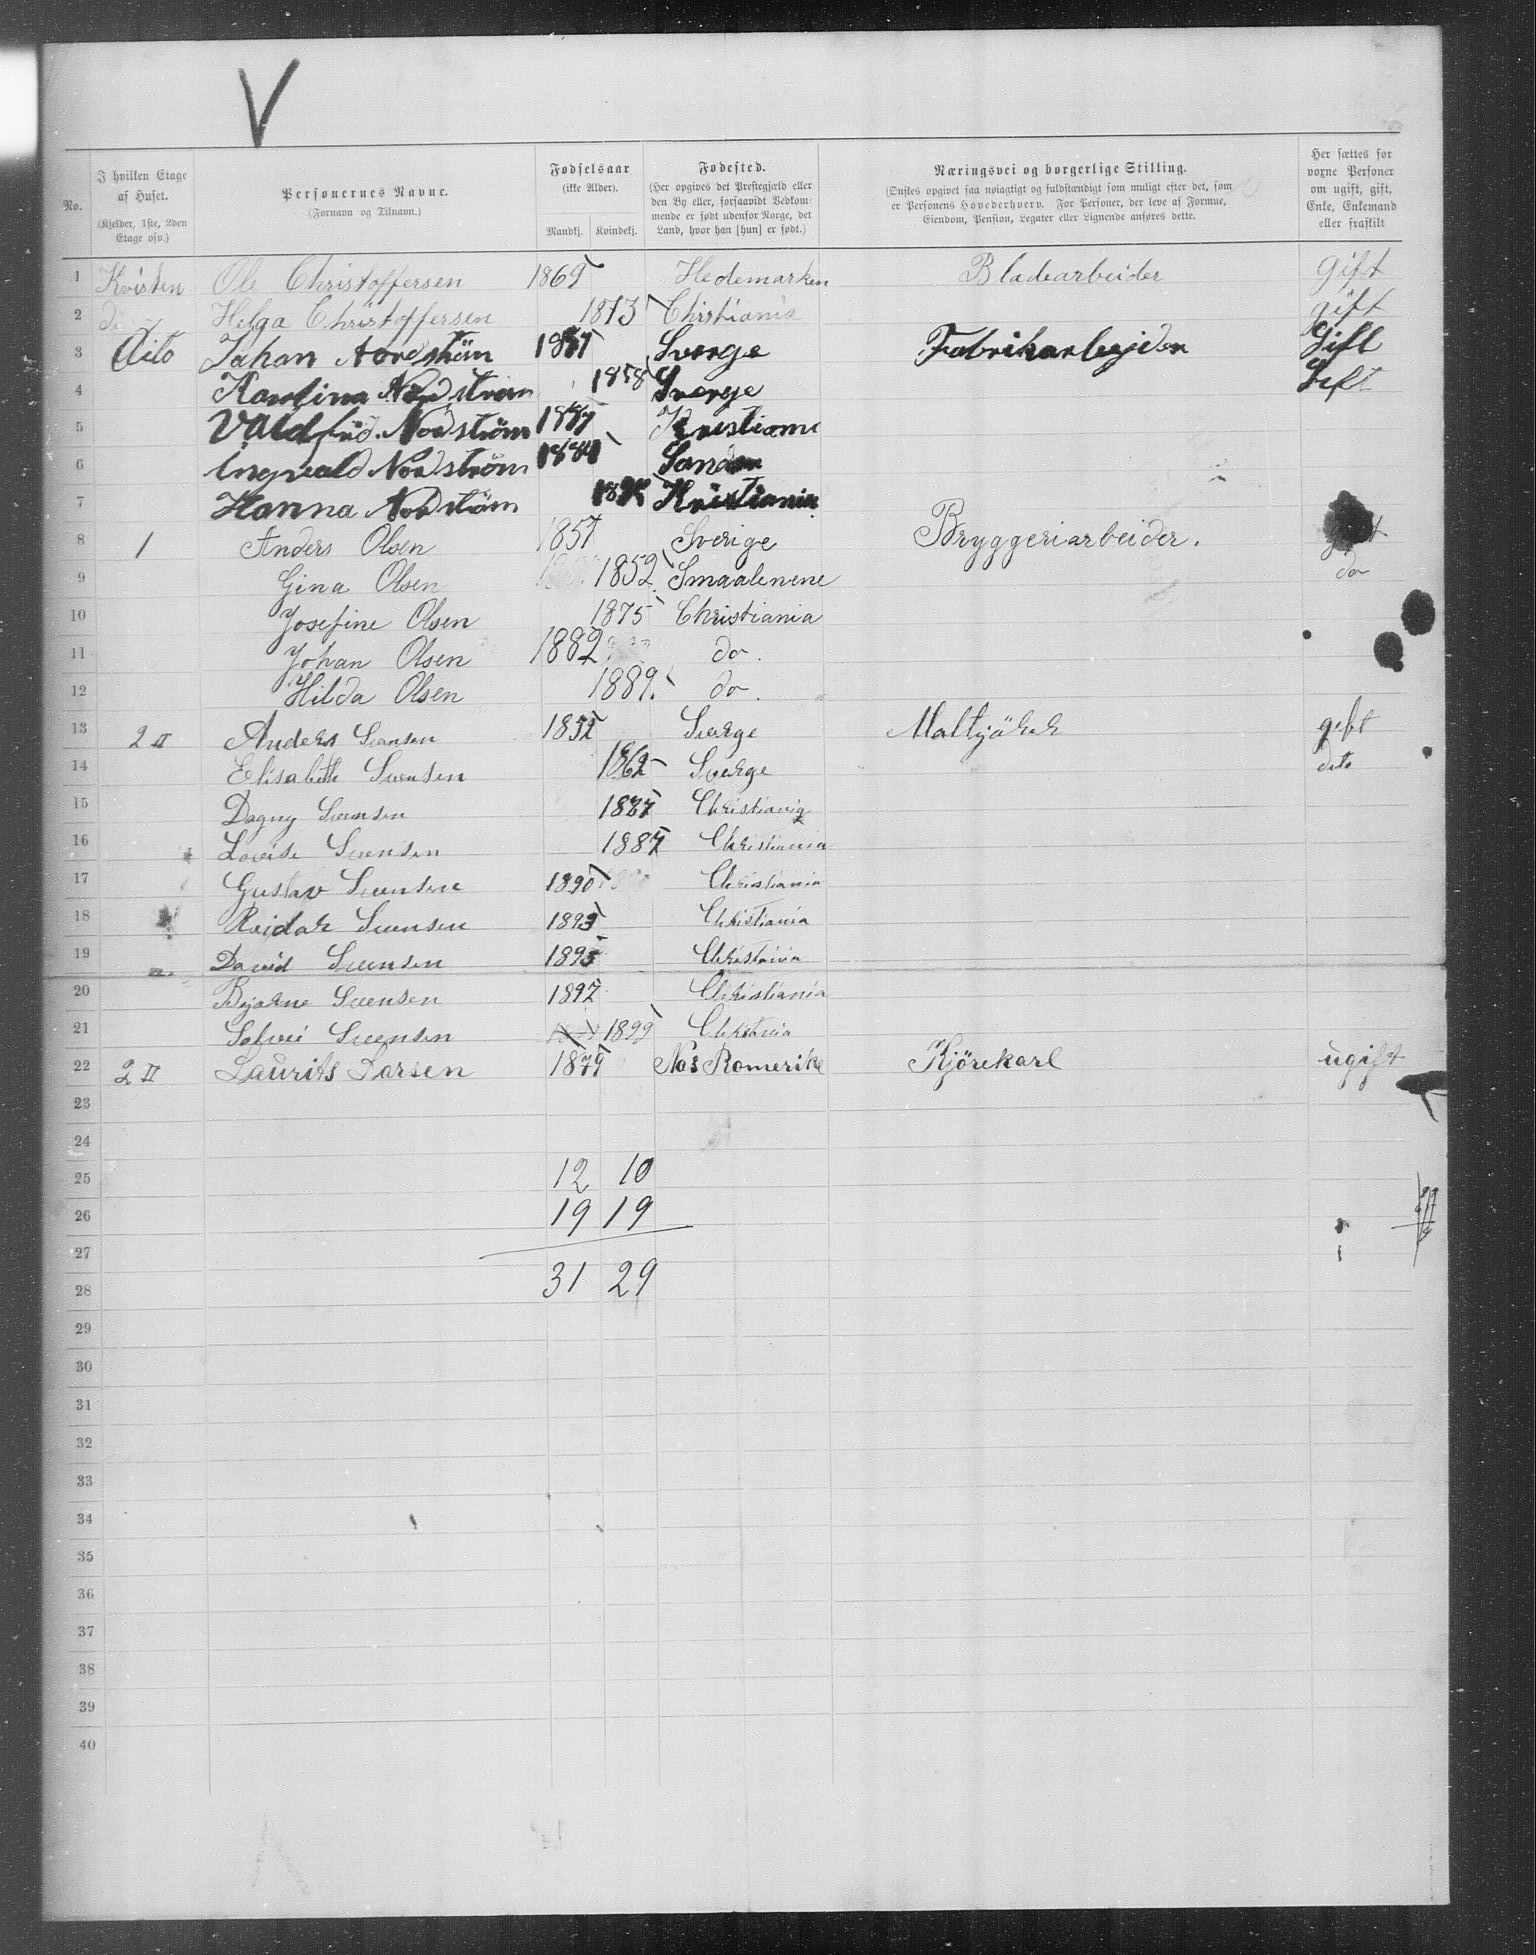 V
No.
I hvilken Etage af Huset.
(Kjelder, 1ste, 2den Etage osv.)
Personernes Navne.
(Fornavn og Tilnavn.)
Fødselsaar
(ikke Alder).
Mandkj. Kvindekj.
Fødested.
(Her opgives det Prestegjæld eller den By eller, forsaavidt Vedkommende er født udenfor Norge, det Land, hvor han [hun] er født.)
Næringsvei og borgerlige Stilling.
(Ønskes opgivet saa nøiagtigt og fuldstændigt som muligt efter det, som er Personens Hovederhverv. For Personer, der leve af Formue, Eiendom, Pension, Legater eller Lignende anføres dette.
Her sættes for voxne Personer om ugift, gift, Enke, Enkemand eller fraskilt
1 Kvisten Ole Christoffersen 1869 Hedemarken Bladearbeider gift
2 Helga Christoffersen 1873 Christiania gift
3 Dito Johan Nordström 1857 Sverge Fabrikarbejder Gift
4 Karolina Nordström 1858 Sverge Gift
5 Valdfrid Nordström 1887 Kristiania
6 Ingvald Nordström 1884
7 Hanna Nordström Kristiania
8 1 Anders Olsen 1857 Sverige Bryggeriarbeider.
9 Gina Olsen 1852 Smaalenene do
10 Josefine Olsen 1875 Christiania
11 Johan Olsen 1882 do.
12 Hilda Olsen 1889. do.
13 2 II Anders Svensen 1852 Sverge Maltkjörer gift
14 Elisabeth Svensen 1862 Sverge dito
15 Dagny Svensen 1887 Christiania
16 Lovise Svensen 1887 Christiania
17 Gustav Svensen 1890 Christiania
18 Reidar Svensen 1893 Christiania
19 David Svensen 1895 Christiania
20 Bjarne Svensen 1897 Christiania
21 Solvei Svensen 1899 Christiania
22 2 II Laurits Larsen 1879 Nes Romerike Kjörekarl ugift
23
24
25 12 10
26 19 19
27
28 31 29
29
30
31
32
33
34
35
36
37
38
39
40